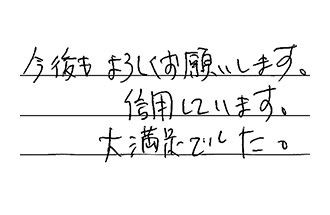 今後もよろしくお願いします。
信用しています。
大満足でした。